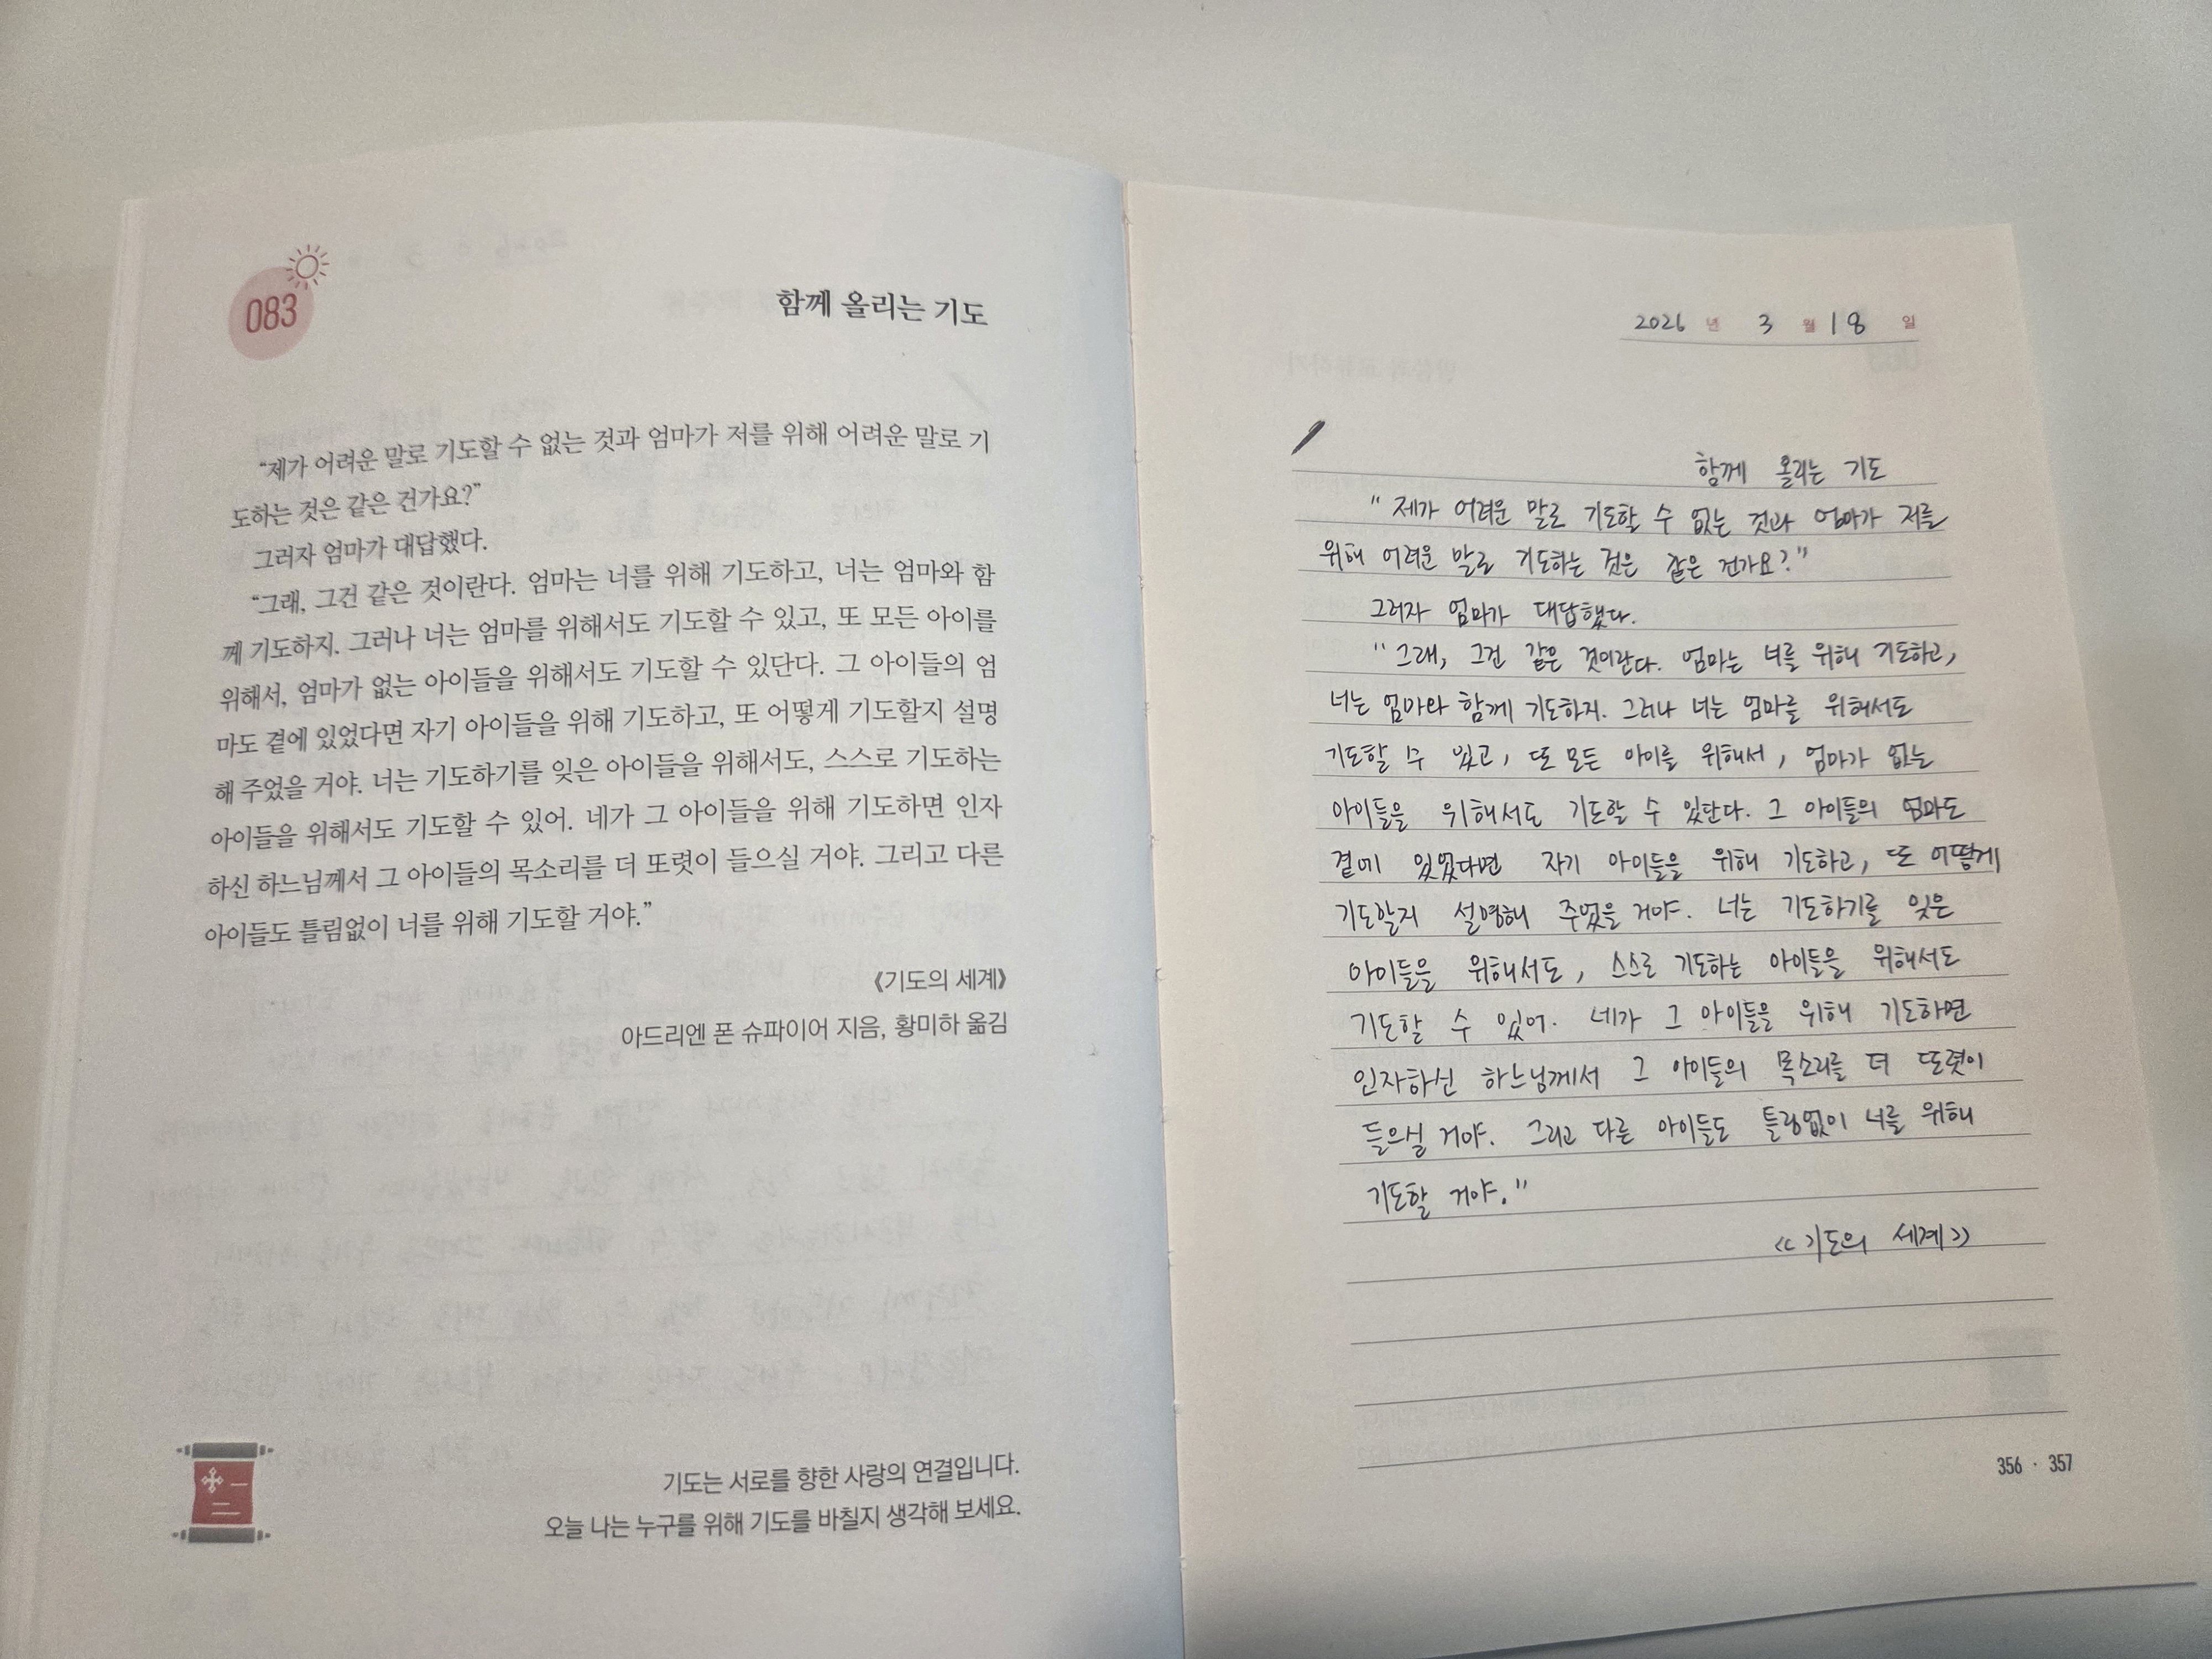 083
함께 올리는 기도
“제가 어려운 말로 기도할 수 없는 것과 엄마가 저를 위해 어려운 말로 기
도하는 것은 같은 건가요?”
그러자 엄마가 대답했다.
“그래, 그건 같은 것이란다. 엄마는 너를 위해 기도하고, 너는 엄마와 함
께 기도하지. 그러나 너는 엄마를 위해서도 기도할 수 있고, 또 모든 아이를
위해서, 엄마가 없는 아이들을 위해서도 기도할 수 있단다. 그 아이들의 엄
마도 곁에 있었다면 자기 아이들을 위해 기도하고, 또 어떻게 기도할지 설명
해 주었을 거야. 너는 기도하기를 잊은 아이들을 위해서도, 스스로 기도하는
아이들을 위해서도 기도할 수 있어. 네가 그 아이들을 위해 기도하면 인자
하신 하느님께서 그 아이들의 목소리를 더 또렷이 들으실 거야. 그리고 다른
아이들도 틀림없이 너를 위해 기도할 거야.”
《기도의 세계》
아드리엔 폰 슈파이어 지음, 황미하 옮김
기도는 서로를 향한 사랑의 연결입니다.
오늘 나는 누구를 위해 기도를 바칠지 생각해 보세요.
2026 년 3 월 18 일
함께 올리는 기도
“제가 어려운 말로 기도할 수 없는 것과 엄마가 저를
위해 어려운 말로 기도하는 것은 같은 건가요?”
그러자 엄마가 대답했다.
“그래, 그건 같은 것이란다. 엄마는 너를 위해 기도하고,
너는 엄마와 함께 기도하지. 그러나 너는 엄마를 위해서도
기도할 수 있고, 또 모든 아이를 위해서, 엄마가 없는
아이들을 위해서도 기도할 수 있단다. 그 아이들의 엄마도
곁에 있었다면 자기 아이들을 위해 기도하고, 또 어떻게
기도할지 설명해 주었을 거야. 너는 기도하기를 잊은
아이들을 위해서도, 스스로 기도하는 아이들을 위해서도
기도할 수 있어. 네가 그 아이들을 위해 기도하면
인자하신 하느님께서 그 아이들의 목소리를 더 또렷이
들으실 거야. 그리고 다른 아이들도 틀림없이 너를 위해
기도할 거야.”
《기도의 세계》
356 · 357